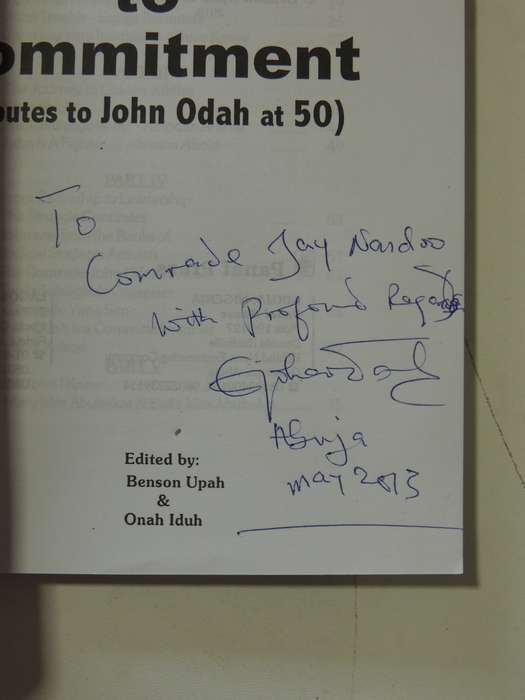 to
ommitment
butes to John Odah at 50)
To
Comrade Jay Naidoo
with Profound Regards
Abuja
May 2013
Edited by:
Benson Upah
&
Onah Iduh